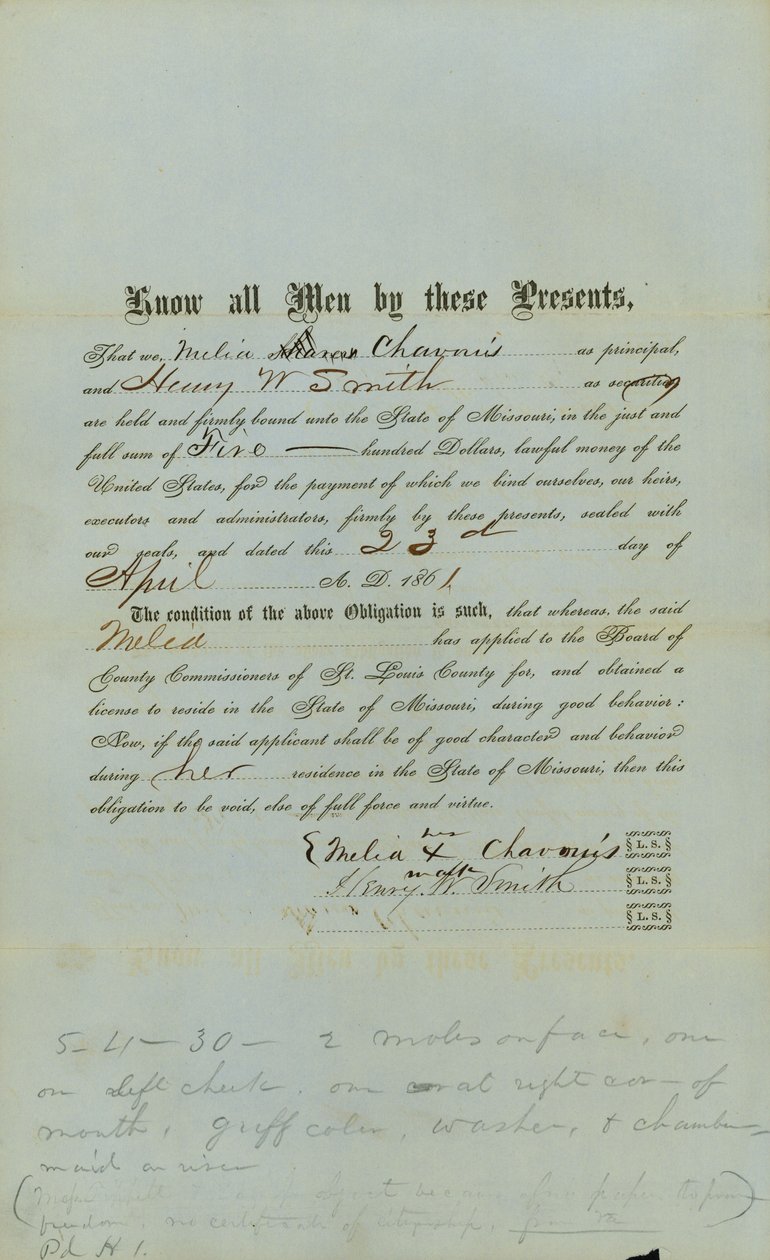 Know all Men by these Presents,
That we, Melia Chavouis as principal,
and Henry W Smith as securities
are held and firmly bound unto the State of Missouri, in the just and
full sum of Five hundred Dollars, lawful money of the
United States, for the payment of which we bind ourselves, our heirs,
executors and administrators, firmly by these presents, sealed with
our seals, and dated this 23d day of
April A. D. 1861
The condition of the above Obligation is such, that whereas, the said
Melia has applied to the Board of
County Commissioners of St. Louis County for, and obtained a
license to reside in the State of Missouri, during good behavior:
Now, if the said applicant shall be of good character and behavior
during her residence in the State of Missouri, then this
obligation to be void, else of full force and virtue.
her
Melia X Chavouis L. S.
mark
Henry W. Smith L. S.
L. S.
5-4-30- 2 moles on face, one
on left cheek. one at right cor- of
mouth, griff color, washer, & chamber-
maid on river
object because papers to prove
freedom, no certificate of citizenship,
Pd H 1.